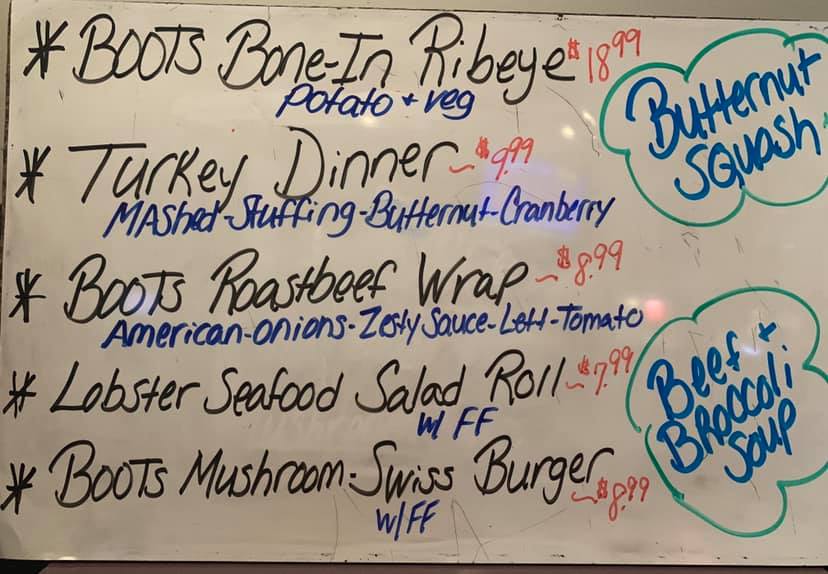 * BOOTS Bone-In Ribeye $18.99
Potato + veg
* Turkey Dinner ~ $9.99
MAShed-Stuffing-Butternut-Cranberry
* BOOTS Roastbeef Wrap ~ $8.99
American-onions-Zesty Sauce-Lett-Tomato
* Lobster Seafood Salad Roll ~ $7.99
w/ FF
* BOOTS Mushroom-Swiss Burger ~ $8.99
w/FF
Butternut
SQUASH
Beef +
BROccoli
SOUP